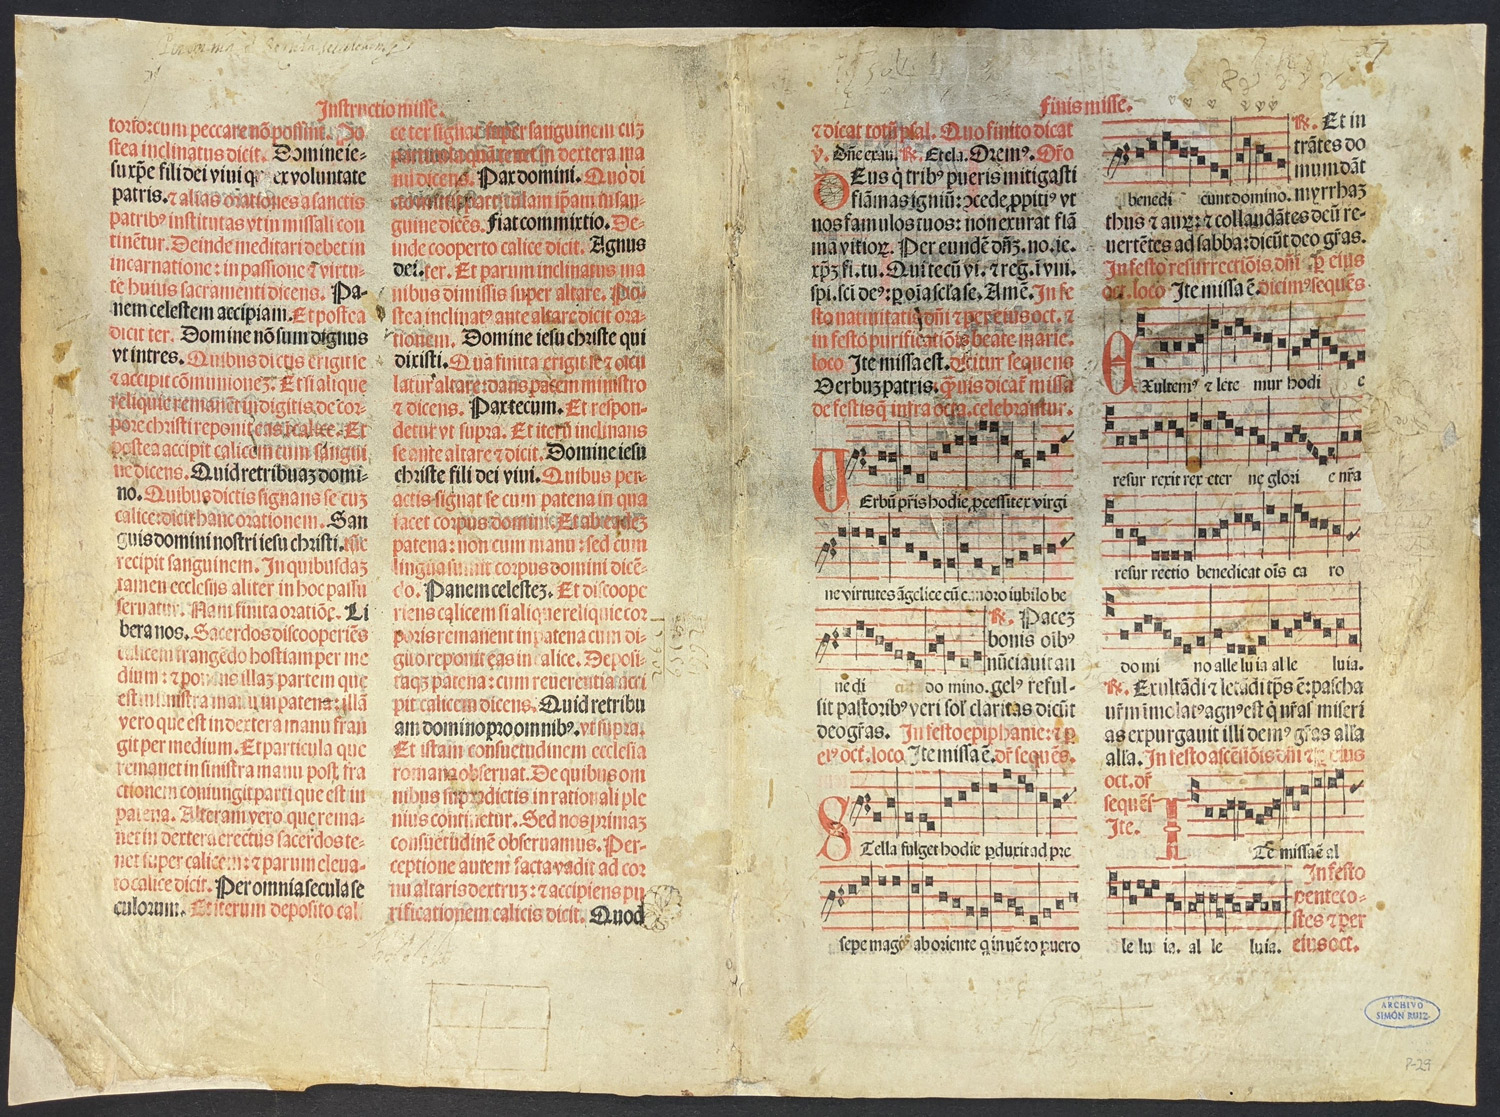 Instructio misse.
torio: cum peccare nō possint. Po-
stea inclinatus dicit. Domine ie-
su xp̄e fili dei vivi q ex voluntate
patris. ⁊ alias orationes a sanctis
patribꝰ institutas vt in missali con
tinētur. Deinde meditari debet in
incarnatione: in passione ⁊ virtu-
te huius sacramenti dicens. Pa-
nem celestem accipiam. Et postea
dicit ter. Domine nō sum dignus
vt intres. Quibus dictis erigit se
⁊ accipit cōmunionez. Et si alique
reliquie remanēt in digitis de cor-
pore christi reponit eas in calice. Et
postea accipit calicem cum sangui
ne dicens. Quid retribuaz domi-
no. Quibus dictis signans se cuz
calice: dicit hanc orationem. San
guis domini nostri iesu christi.
recipit sanguinem. In quibusdaz
tamen ecclesijs aliter in hoc passu
seruatur. Nam finita oratiōe. Li
bera nos. Sacerdos discooperiēs
calicem frangēdo hostiam per me
dium: ⁊ ponens illaz partem que
est in sinistra manu in patena: illā
vero que est in dextera manu fran
git per medium. Et particula que
remanet in sinistra manu post fra
ctionem coniungit parti que est in
patena. Alteram vero que rema-
net in dextera erectus sacerdos te-
net super calicem: ⁊ parum eleua-
to calice dicit. Per omnia secula se
culorum. Et iterum deposito cal.
ce ter signat super sanguinem cuz
particula quā tenet in dextera ma
nu dicens. Pax domini. Quo di
particulam ip̄am in san-
guine dicēs. Fiat commixtio. De-
inde cooperto calice dicit. Agnus
dei. ter. Et parum inclinatus ma
nibus dimissis super altare. Po-
stea inclinatꝰ ante altare dicit ora-
tionem. Domine iesu christe qui
dixisti. Qua finita erigit se ⁊ oscu
latur altare: dans pacem ministro
⁊ dicens. Pax tecum. Et respon-
detur vt supra. Et iterū inclinans
se ante altare ⁊ dicit. Domine iesu
christe fili dei vivi. Quibus per-
actis signat se cum patena in qua
iacet corpus domini. Et ab eadez
patena: non cum manu: sed cum
lingua sumit corpus domini dicē-
do. Panem celestez. Et discoope
riens calicem si alique reliquie cor
poris remanent in patena cum di-
gito reponit eas in calice. Deposi-
taqz patena: cum reuerentia acci
pit calicem dicens. Quid retribu
am domino pro omnibꝰ. vt supra.
Et istam consuetudinem ecclesia
romana obseruat. De quibus om
nibus supradictis in rationali ple
nius continetur. Sed nos primaz
consuetudinē obseruamus. Per-
ceptione autem facta vadit ad cor
nu altaris dextruz: ⁊ accipiens pu
rificationem calicis dicit. Quod
Finis misse.
⁊ dicat totū psal. Quo finito dicat
℣. Dn̄e exau. ℟. Et cla. Oremꝰ. Oro
Deus q̇ tribꝰ pueris mitigasti
flāmas igniū: ꝯcede ꝓpitiꝰ vt
nos famulos tuos: non exurat flā
ma vitioꝝ. Per eundē dn̄z. no. ie.
xp̄z fi. tu. Qui tecū vi. ⁊ reg. i vni.
spi. sci deꝰ: p oia scla se. Amē. In fe
sto natiuitatis dn̄i ⁊ per eius oct. ⁊
in festo purificatiōis beate marie.
loco Ite missa est. dicitur sequens
Verbuz patris. q̄uis dicat missa
de festis q̇ infra octa. celebrantur.
Uerbū pr̄is hodie ꝓcessit ex virgi
ne virtutes āgelice cū canoro iubilo be
℟. Pacez
bonis oībꝰ
nūciauit an
nedi ca do mino. gelꝰ reful-
sit pastoribꝰ veri sol̄ claritas dicūt
deo gr̄as. In festo epiphanie: ⁊ p
eiꝰ oct. loco. Ite missa ē. dr̄ sequēs.
Stella fulget hodie ꝓduxit ad pre
sepe magos ab oriente q inuēto puero
℟. Et in
trātes do
mum dāt
benedi cunt domino. myrrhaz
thus ⁊ auꝝ: ⁊ collaudātes deū re-
uertētes ad sabba: dicūt deo gr̄as.
In festo resurrectiōis dn̄i ⁊ p eius
oct. loco Ite missa ē. dicimꝰ sequēs
Exultemꝰ ⁊ lete mur hodi e
resur rexit rex eter ne glori e nr̄a
resur rectio benedicat oīs ca ro
do mi no alle lu ia al le luia.
℟. Exultādi ⁊ letādi tp̄s ē: pascha
nr̄m imolatꝰ agnꝰ est q̇ nr̄as miseri
as expurgauit illi demꝰ gr̄as alla
alla. In festo ascēsiōis dn̄i ⁊ p eius
oct. dr̄
sequēs
Ite.
Ite missa ē al
le lu ia. al le luia.
In festo
penteco-
stes ⁊ per
eius oct.
ARCHIVO
SIMÓN RUIZ
P-29